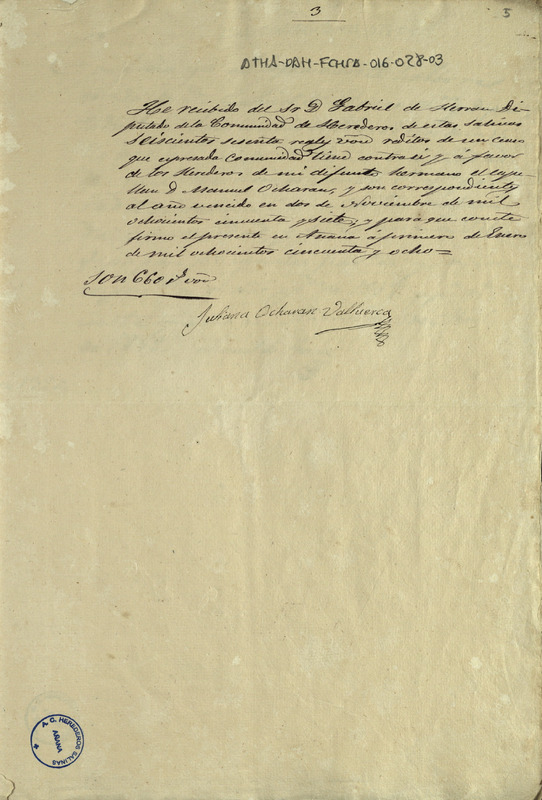 3
5
ATHA-DAH-FCHSA-016-028-03
He recibido del Sr D Gabriel de Herran Di-
putado de la Comunidad de Herederos de estas salinas
Seiscientos sesenta reales von reditos de un censo
que expresada Comunidad tiene contra si y á favor
de los Herederos de mi difunto hermano el cape-
llan D. Manuel Ocharan, y son correspondientes
al año vencido en dos de Noviembre de mil
ochocientos cincuenta y siete, y para que conste
firmo el presente en Añana á primero de Enero
de mil ochocientos cincuenta y ocho=
Son 660 rs von
Juliana Ocharan Valluerca
A. C. HEREDEROS SALINAS
AÑANA